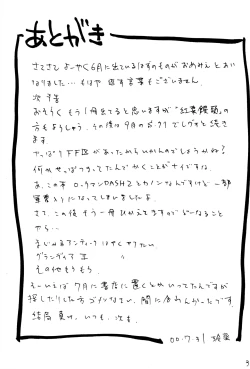 あとがき
さてさて、よーやく6月に出ているはずのものがおめみえとあい
なりました…もはや返す言葉もございません。
次号
おそらくもう1冊出てると思いますが"紅茶饅頭"の
方もよろしう。その後は9月のおりでレヴォと続き
ます。
やっぱりFFⅨがあったからいかんのでしょうかね?
何かせっぱつまってたんでかくことがナイですね。
あ、この本ロックマンDASH2とカノンなんですけど一部
軍曹とりになってしましましたよ。
さて、この後もう一冊ひかえてますのでどーなること
やら…
まじかるアンティークはやくやりたい
グランディアⅡ 〃
その他もろもろ。
そーいえば7月に書店に置くとかいってたんですが
探したりした方ゴメンなさい、間に合わんかったです。
結局夏は、いつも、次も。
00.7.31